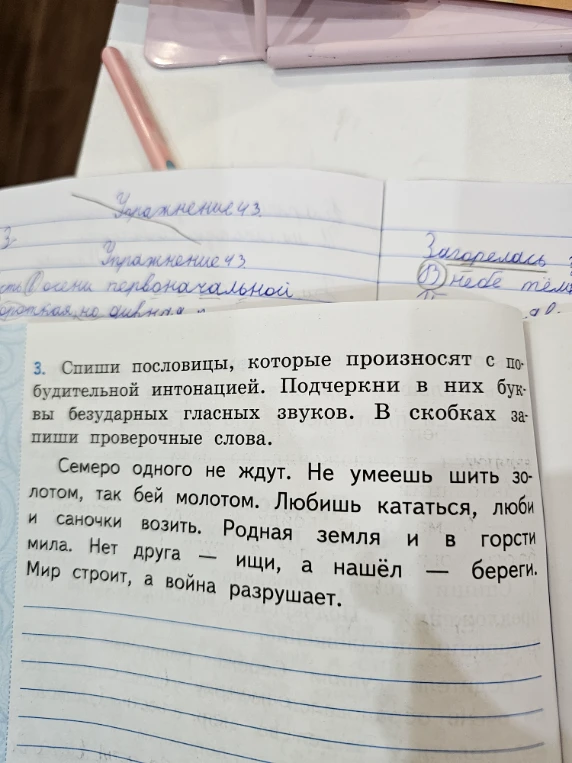 Упражнение 43.
3.
Упражнение 43.
Загорелась
осени первоначальной
В небе
3. Спиши пословицы, которые произносят с по-
будительной интонацией. Подчеркни в них бук-
вы безударных гласных звуков. В скобках за-
пиши проверочные слова.
Семеро одного не ждут. Не умеешь шить зо-
лотом, так бей молотом. Любишь кататься, люби
и саночки возить. Родная земля и в горсти
мила. Нет друга — ищи, а нашёл — береги.
Мир строит, а война разрушает.